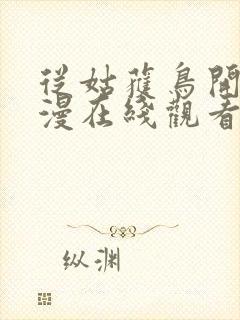 從姑獲鳥開
漫在綫觀看
纵渊